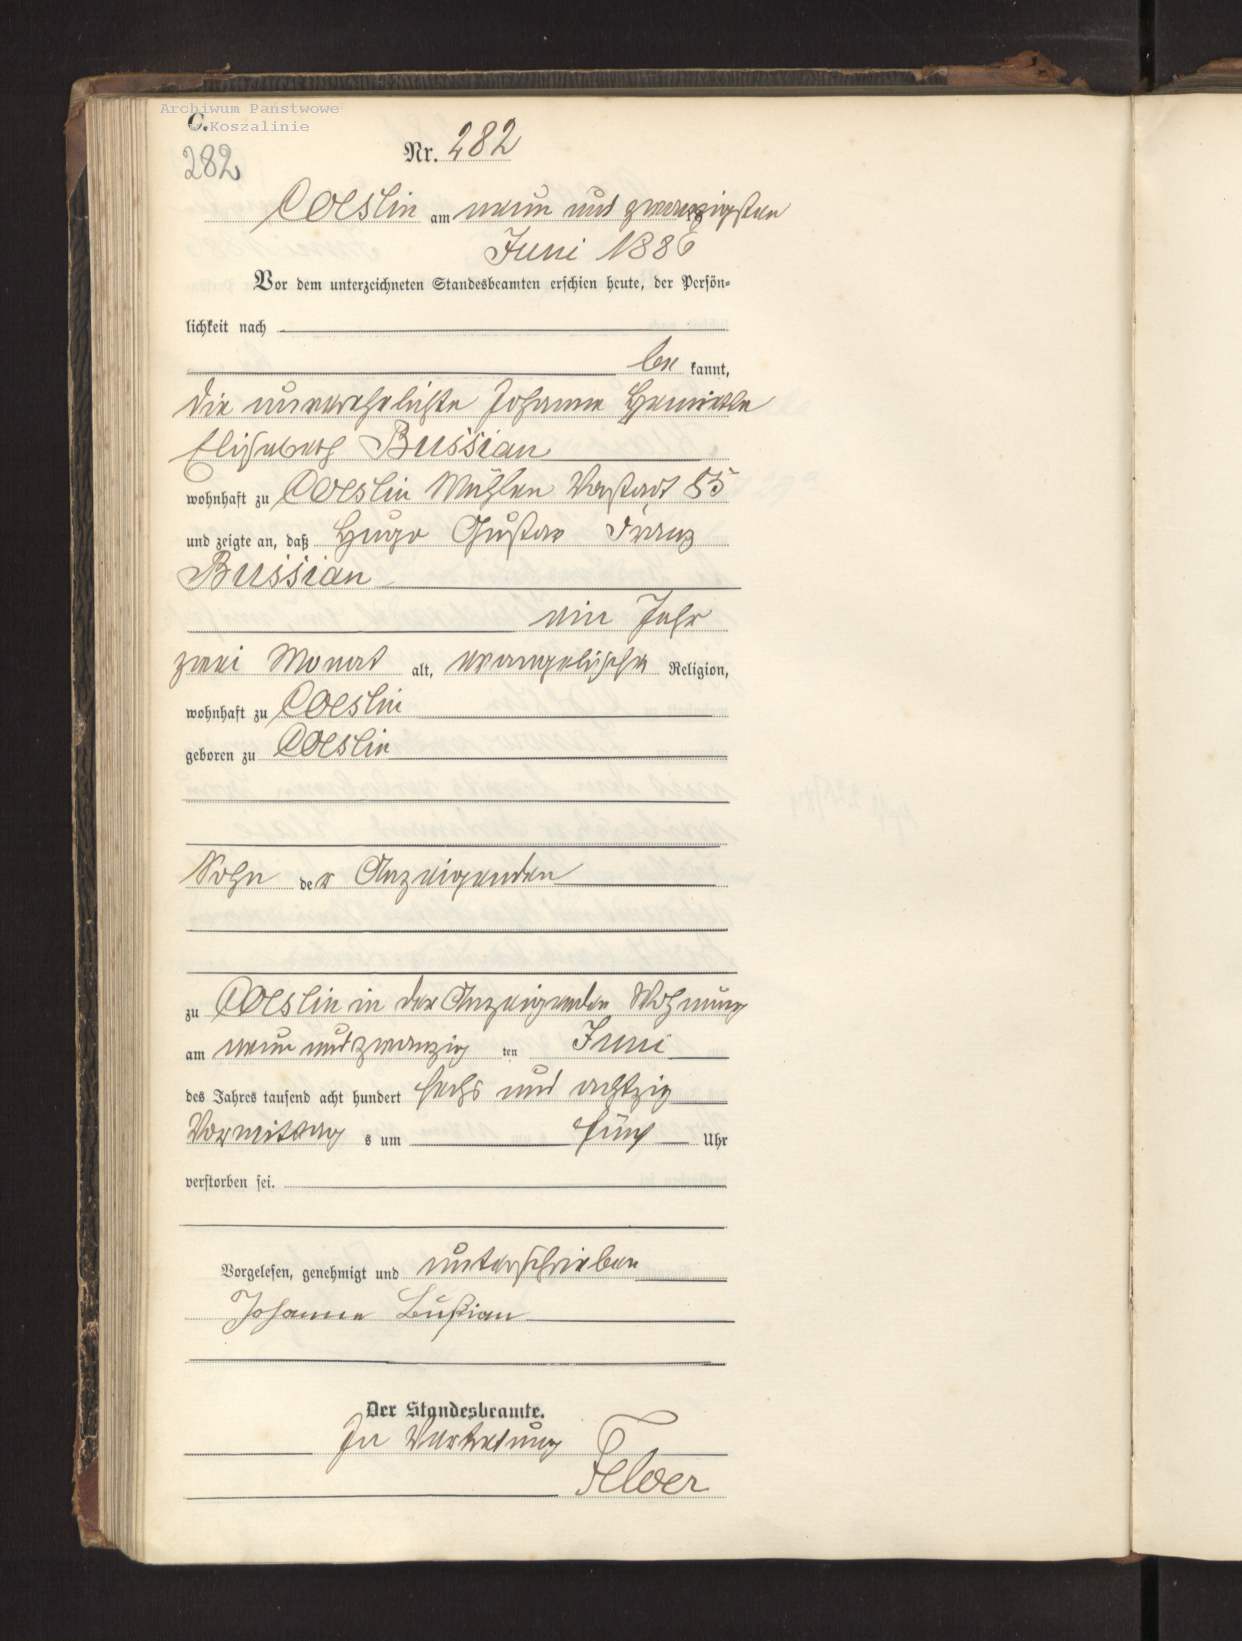 Archiwum Państwowe
w Koszalinie
C.
282
Nr. 282
Coeslin am neun und zwanzigsten
Juni 1886
Vor dem unterzeichneten Standesbeamten erschien heute, der Persön-
lichkeit nach
be kannt,
die unverehelichte Johanne Henriette
Elisabeth Bussian
wohnhaft zu Coeslin Mühlen Vorstadt 85
und zeigte an, daß Hugo Gustav Franz
Bussian
ein Jahr
zwei Monat alt, evangelischer Religion,
wohnhaft zu Coeslin
geboren zu Coeslin
Sohn der Anzeigenden
zu Coeslin in der Anzeigenden Wohnung
am neun und zwanzig ten Juni
des Jahres tausend acht hundert sechs und achtzig
Vormittag s um fünf Uhr
verstorben sei.
Vorgelesen, genehmigt und unterschrieben
Johanne Bußian
Der Standesbeamte.
In Vertretung